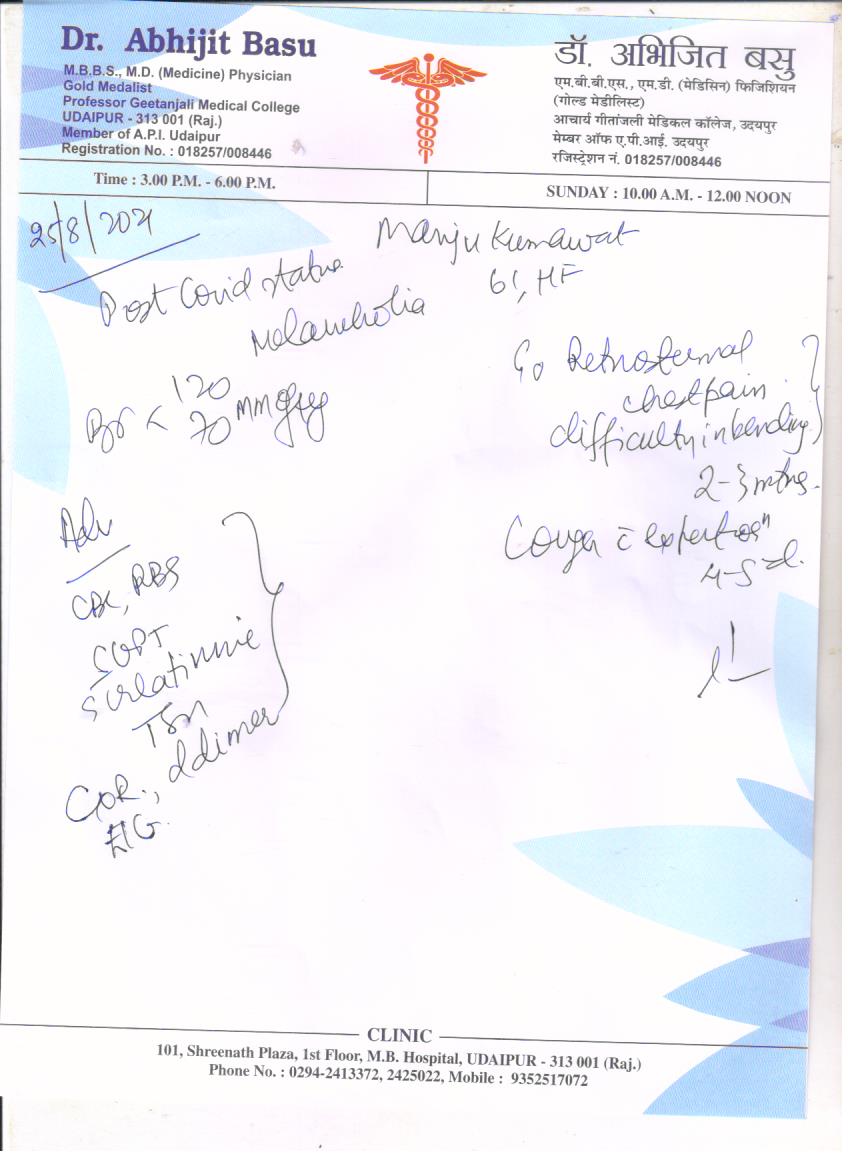 Dr. Abhijit Basu
M.B.B.S., M.D. (Medicine) Physician
Gold Medalist
Professor Geetanjali Medical College
UDAIPUR - 313 001 (Raj.)
Member of A.P.I. Udaipur
Registration No. : 018257/008446
डॉ. अभिजित बसु
एम.बी.बी.एस., एम.डी. (मेडिसिन) फिजिशियन
(गोल्ड मेडीलिस्ट)
आचार्य गीतांजली मेडिकल कॉलेज, उदयपुर
मेम्बर ऑफ ए.पी.आई. उदयपुर
रजिस्ट्रेशन नं. 018257/008446
Time : 3.00 P.M. - 6.00 P.M.
SUNDAY : 10.00 A.M. - 12.00 NOON
25/8/2021
Manju Kumawat
Post Covid status
Melancholia
120
70 MM of Hg
Retrosternal
chest pain
difficulty in bending
2-3 mths.
4-5 d.
Adv
CBC, RBS
SGPT
S creatinine
d dimer
CLINIC
101, Shreenath Plaza, 1st Floor, M.B. Hospital, UDAIPUR - 313 001 (Raj.)
Phone No. : 0294-2413372, 2425022, Mobile : 9352517072